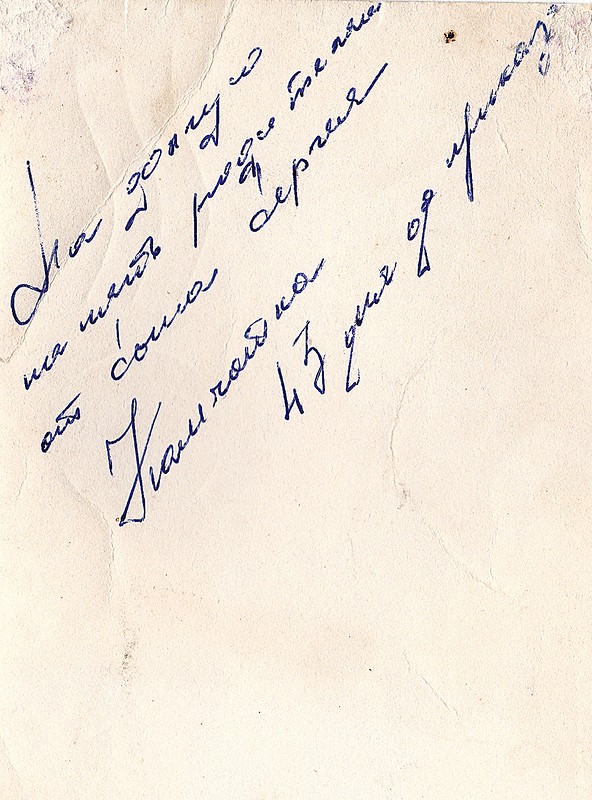 На долгую
память родителям
от сына Сергея
Камчатка
43 дня до приказа